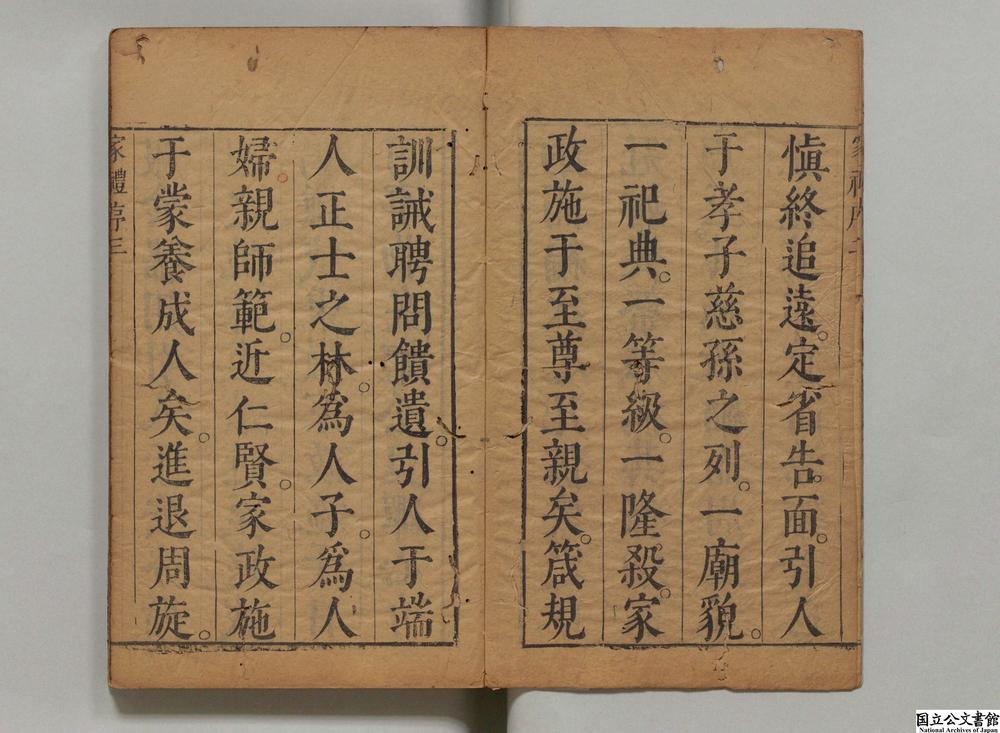 愼終追遠。定省告。面。引人
于孝子慈孫之列。一廟貌。
一祀典。一等級。一隆殺。家
政施于至尊至親矣。箴規
訓誡聘問饋遺。引人于端
人正士之林。爲人子。爲人
婦。親師範。近仁賢。家政施
于蒙養成人矣。進退周旋。
家禮序三
国立公文書館
National Archives of Japan